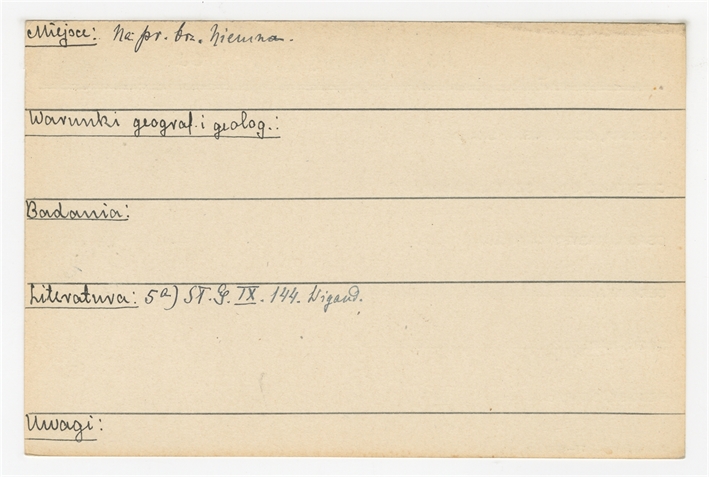 Miejsce: Na pr. brz. Niemna.
Warunki geograf. i geolog.:
Badania:
Literatura: 5a) St. G. IX. 144. Wigand.
Uwagi: